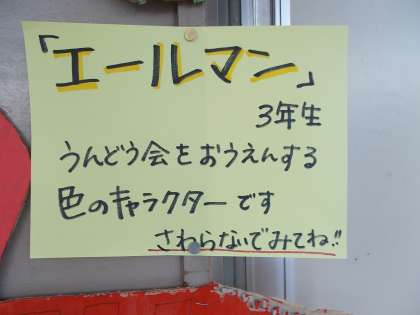 「エールマン」
3年生
うんどう会をおうえんする
色のキャラクターです
さわらないでみてね!!